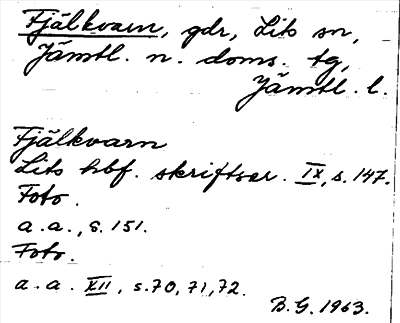 Fjälkvarn, gdr, Lits sn,
Jämtl. n. doms. tg,
Jämtl. l.
Fjälkvarn
Lits hbf. skriftser. IX, s. 147.
Foto.
a. a., s. 151.
Foto.
a. a. XII, s. 70, 71, 72.
B.G. 1963.